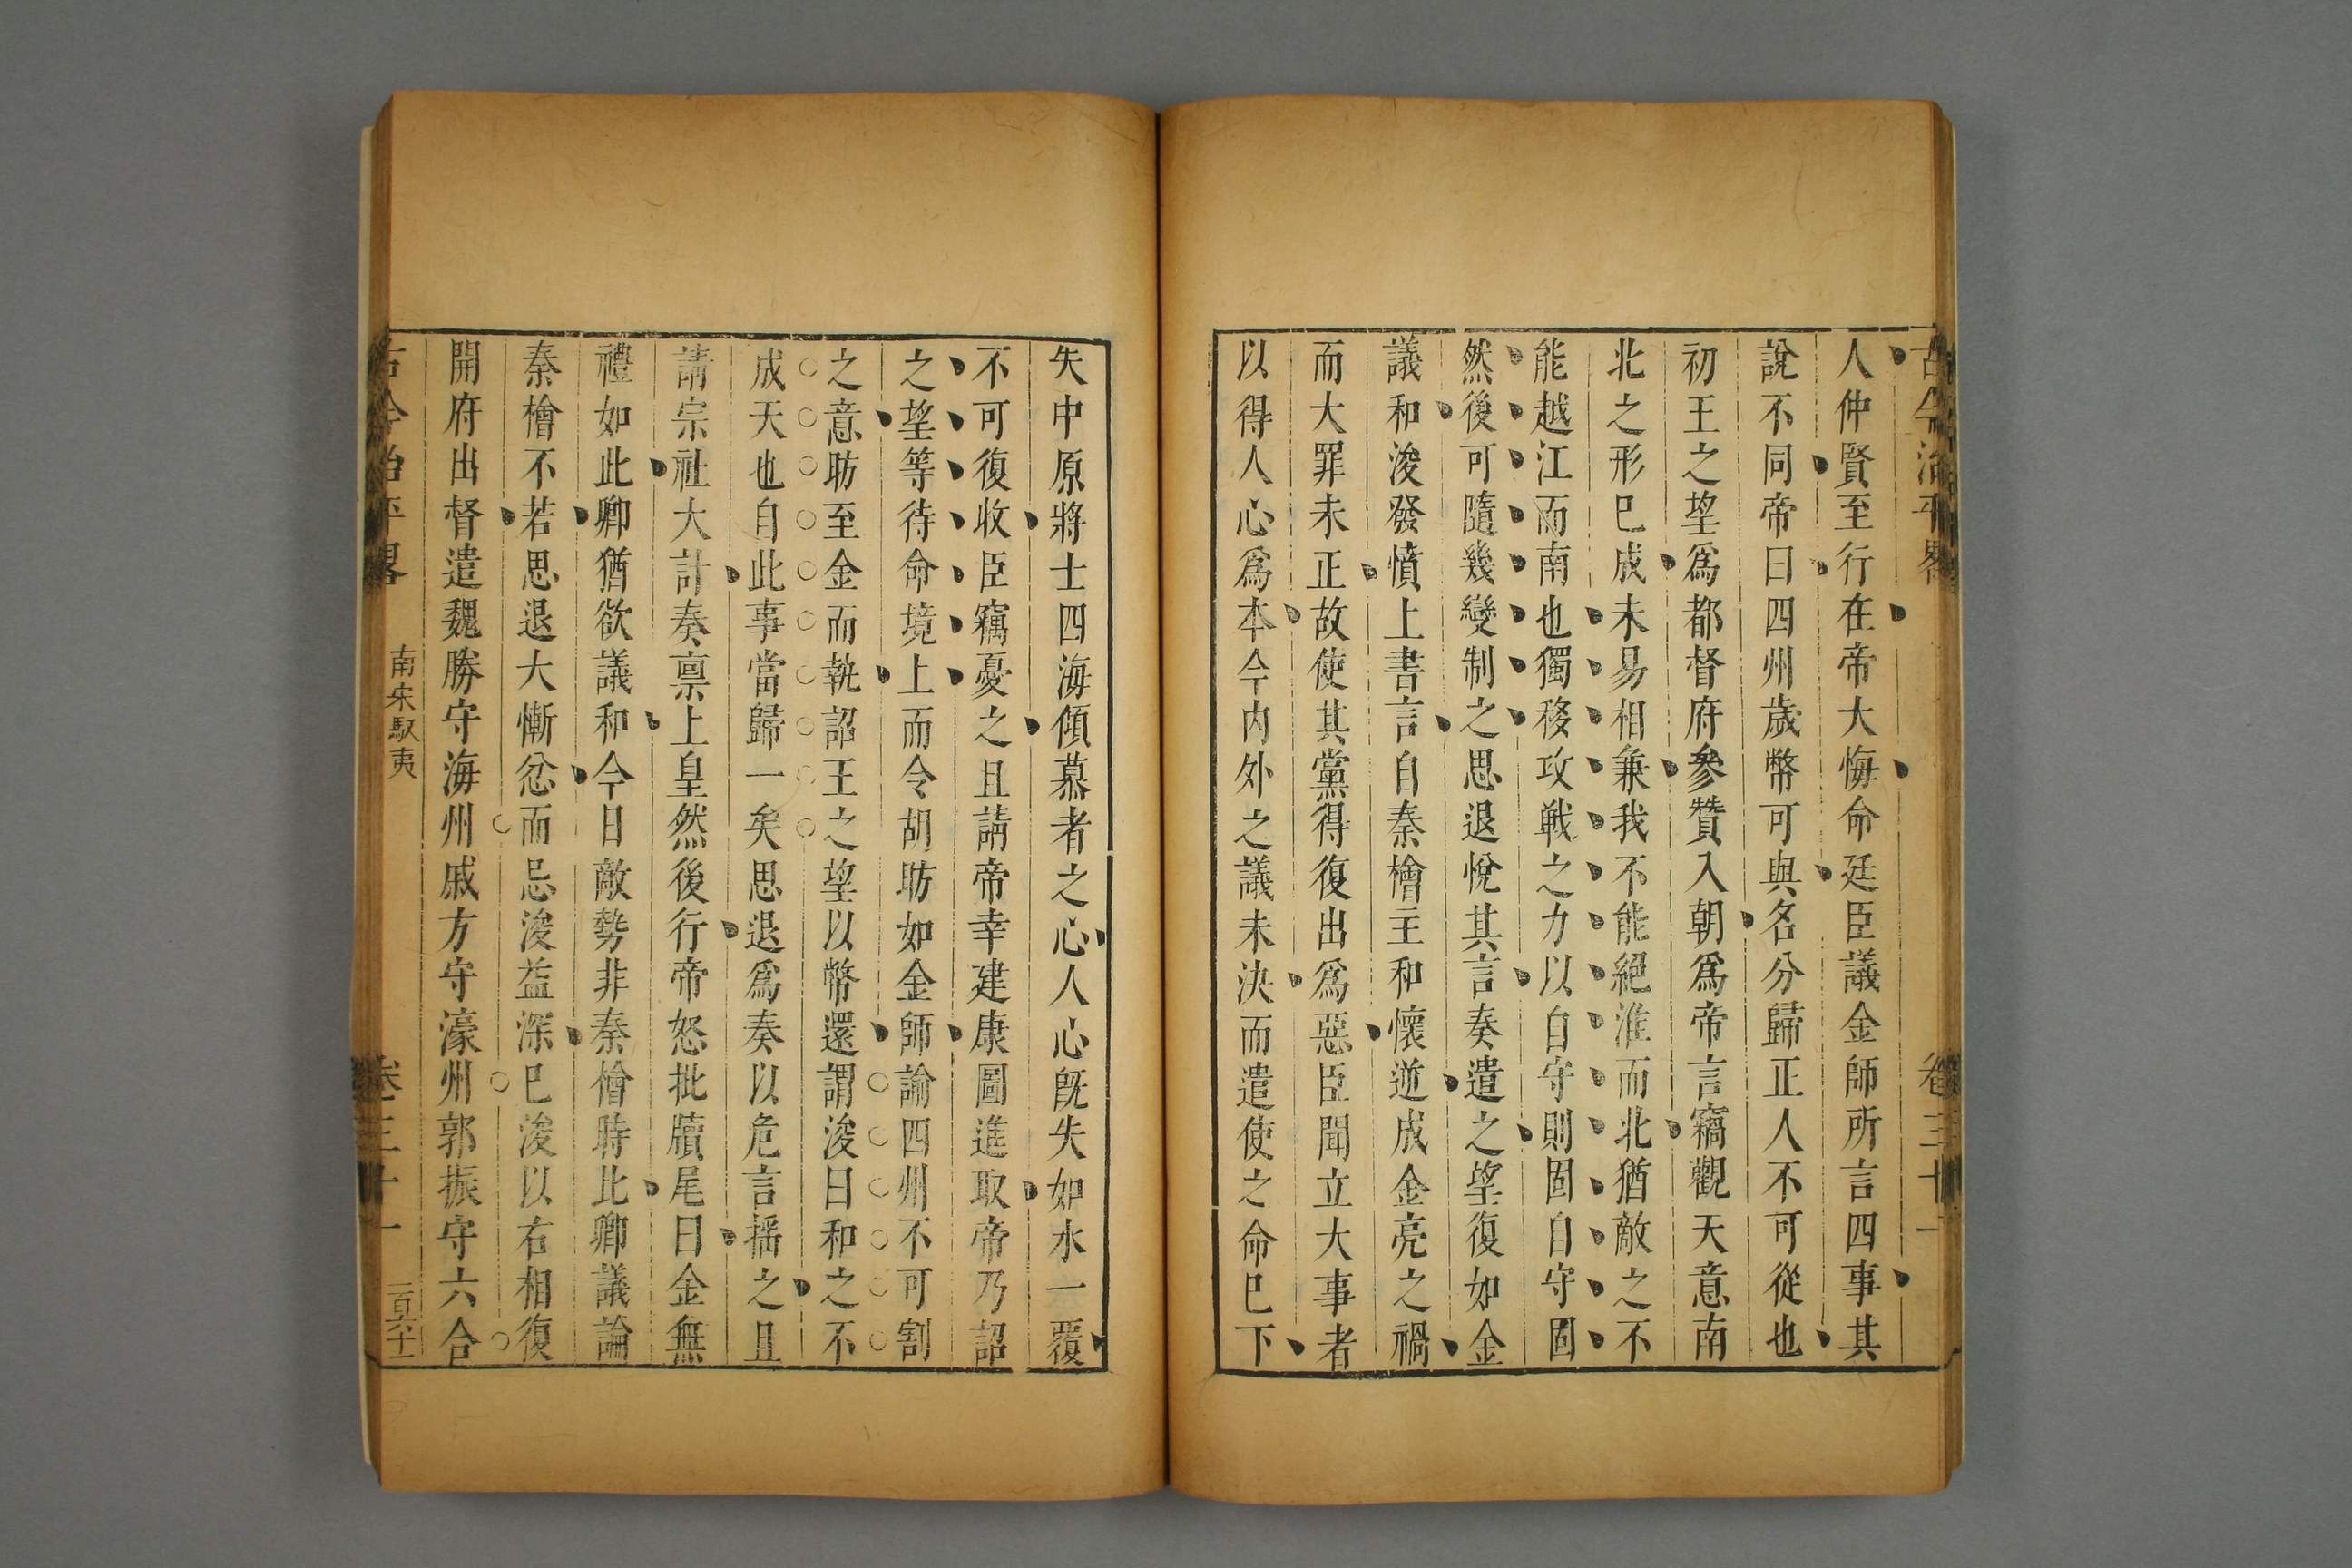 古今治平畧 卷三十一
人仲賢至行在帝大悔命廷臣議金師所言四事其
說不同帝曰四州歲幣可與名分歸正人不可從也
初王之望爲都督府參贊入朝爲帝言竊觀天意南
北之形巳成未易相兼我不能絕淮而北猶敵之不
能越江而南也獨移攻戰之力以自守則固自守固
然後可隨幾變制之思退悅其言奏遣之望復如金
議和浚發憤上書言自秦檜主和懷逆成金亮之禍
而大罪未正故使其黨得復出爲惡臣聞立大事者
以得人心爲本今內外之議未決而遣使之命巳下
失中原將士四海傾慕者之心人心旣失如水一覆
不可復收臣竊憂之且請帝幸建康圖進取帝乃詔
之望等待命境上而令胡昉如金師諭四州不可割
之意昉至金而執詔王之望以幣還謂浚曰和之不
成天也自此事當歸一矣思退爲奏以危言搖之且
請宗社大計奏禀上皇然後行帝怒批牘尾曰金無
禮如此卿猶欲議和今日敵勢非秦檜時比卿議論
秦檜不若思退大慚忿而忌浚益深巳浚以右相復
開府出督遣魏勝守海州戚方守濠州郭振守六合
古今治平畧 南宋馭夷 卷三十一 一百六十二